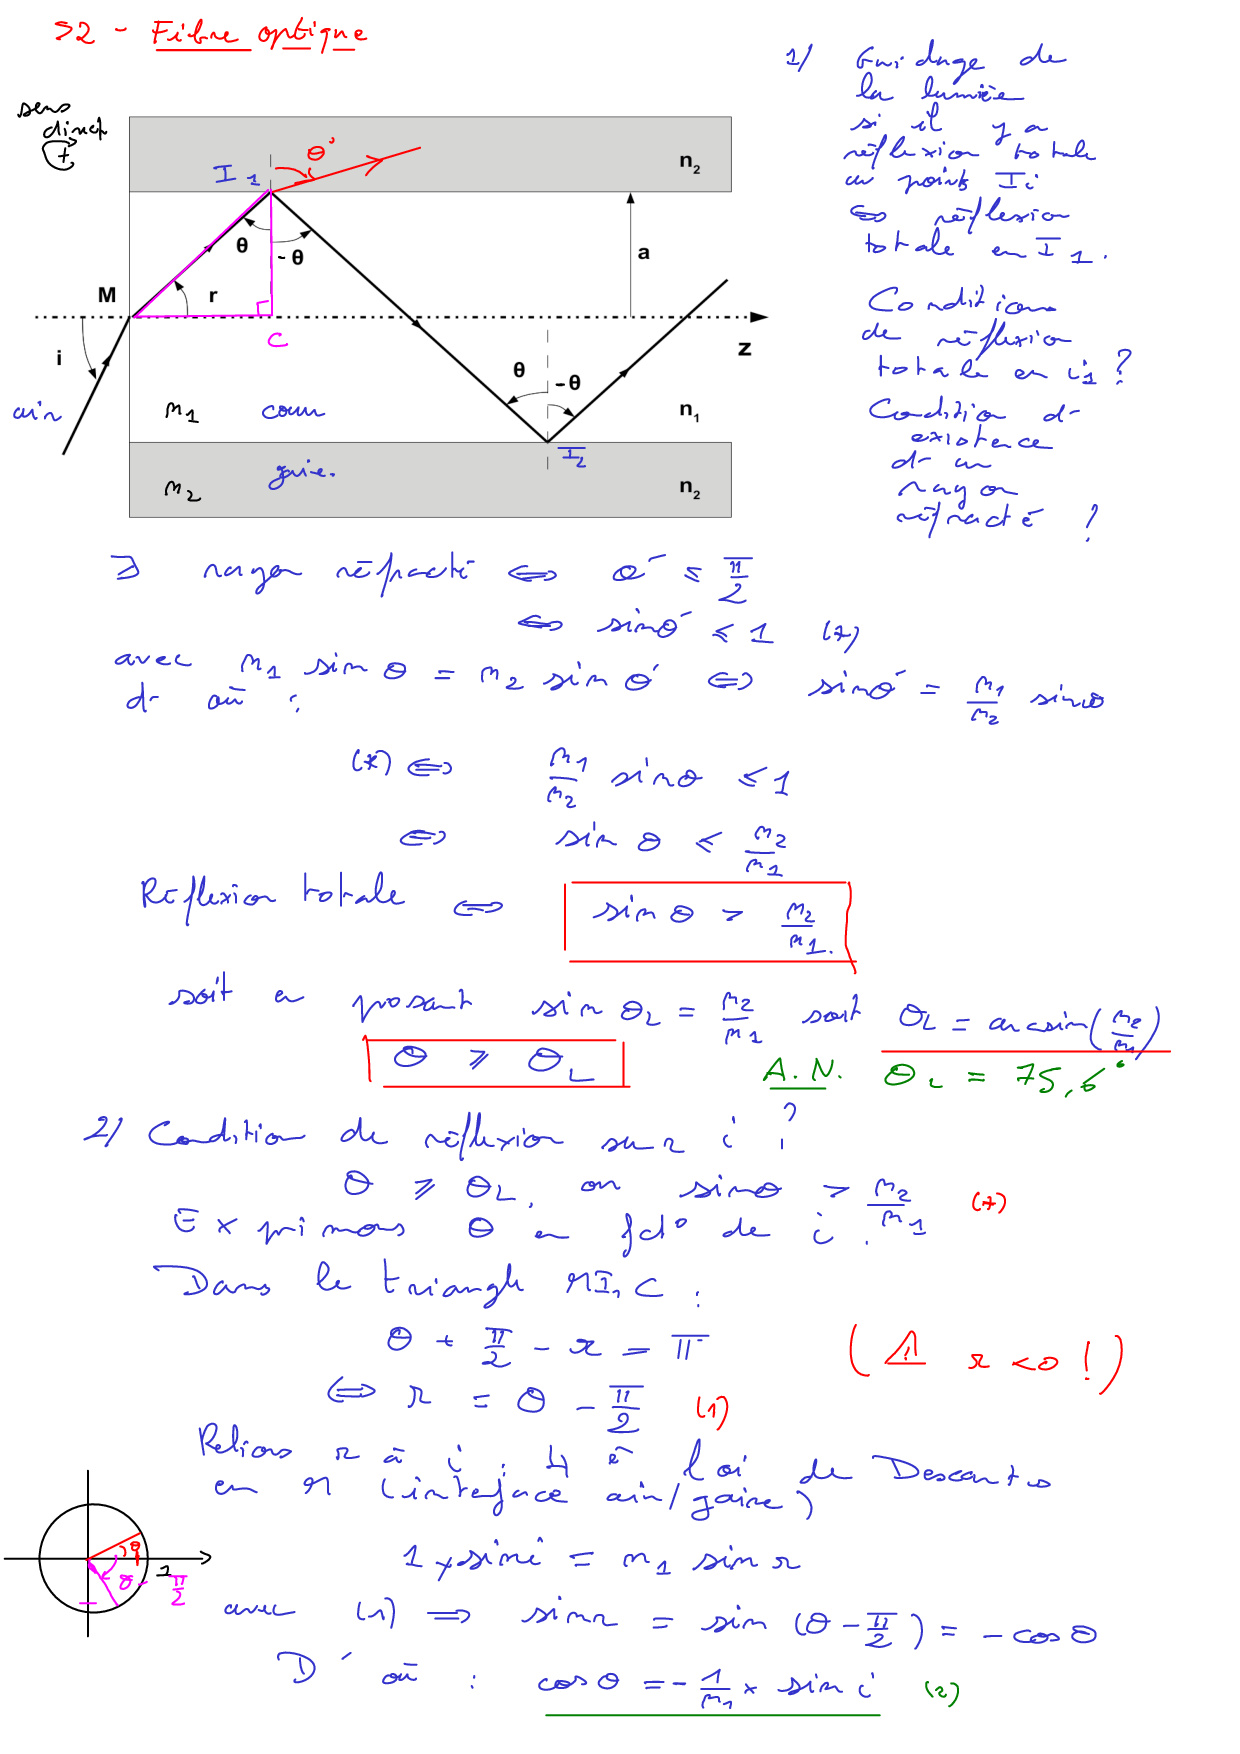 S2 - Fibre optique
sens
direct
+
1/ Guidage de
la lumière
si il y a
réflexion totale
au points Ii
⇔ réflexion
totale en I1.
Conditions
de réflexion
totale en i1 ?
Condition d'
existence
d'un
rayon
réfracté ?
I1
θ'
n2
θ
-θ
a
M
r
C
z
i
air
n1 coeur
θ
-θ
n1
I2
gaine.
n2
n2
∃ rayon réfracté ⇔ θ' ≤ π/2
⇔ sinθ' ≤ 1 (*)
avec n1 sin θ = n2 sin θ' ⇔ sinθ' = n1/n2 sinθ
d'où :
(*) ⇔ n1/n2 sinθ ≤ 1
⇔ sin θ ≤ n2/n1
Réflexion totale ⇔ sin θ > n2/n1.
soit en posant sin θL = n2/n1 soit θL = arcsin(n2/n1)
θ ⩾ θL
A.N. θL = 75,6°
2/ Condition de réflexion sur i ?
θ ⩾ θL, ou sinθ > n2/n1 (*)
Exprimons θ en fct° de i.
Dans le triangle MI1C :
θ + π/2 - r = π
(⚠ r < 0 !)
⇔ r = θ - π/2 (1)
Relions r à i : 4è loi de Descartes
en M (interface air/gaine)
1 × sin i = n1 sin r
θ
1
θ - π/2
avec (1) ⇒ sin r = sin (θ - π/2) = - cos θ
D'où : cos θ = - 1/n1 × sin i (2)